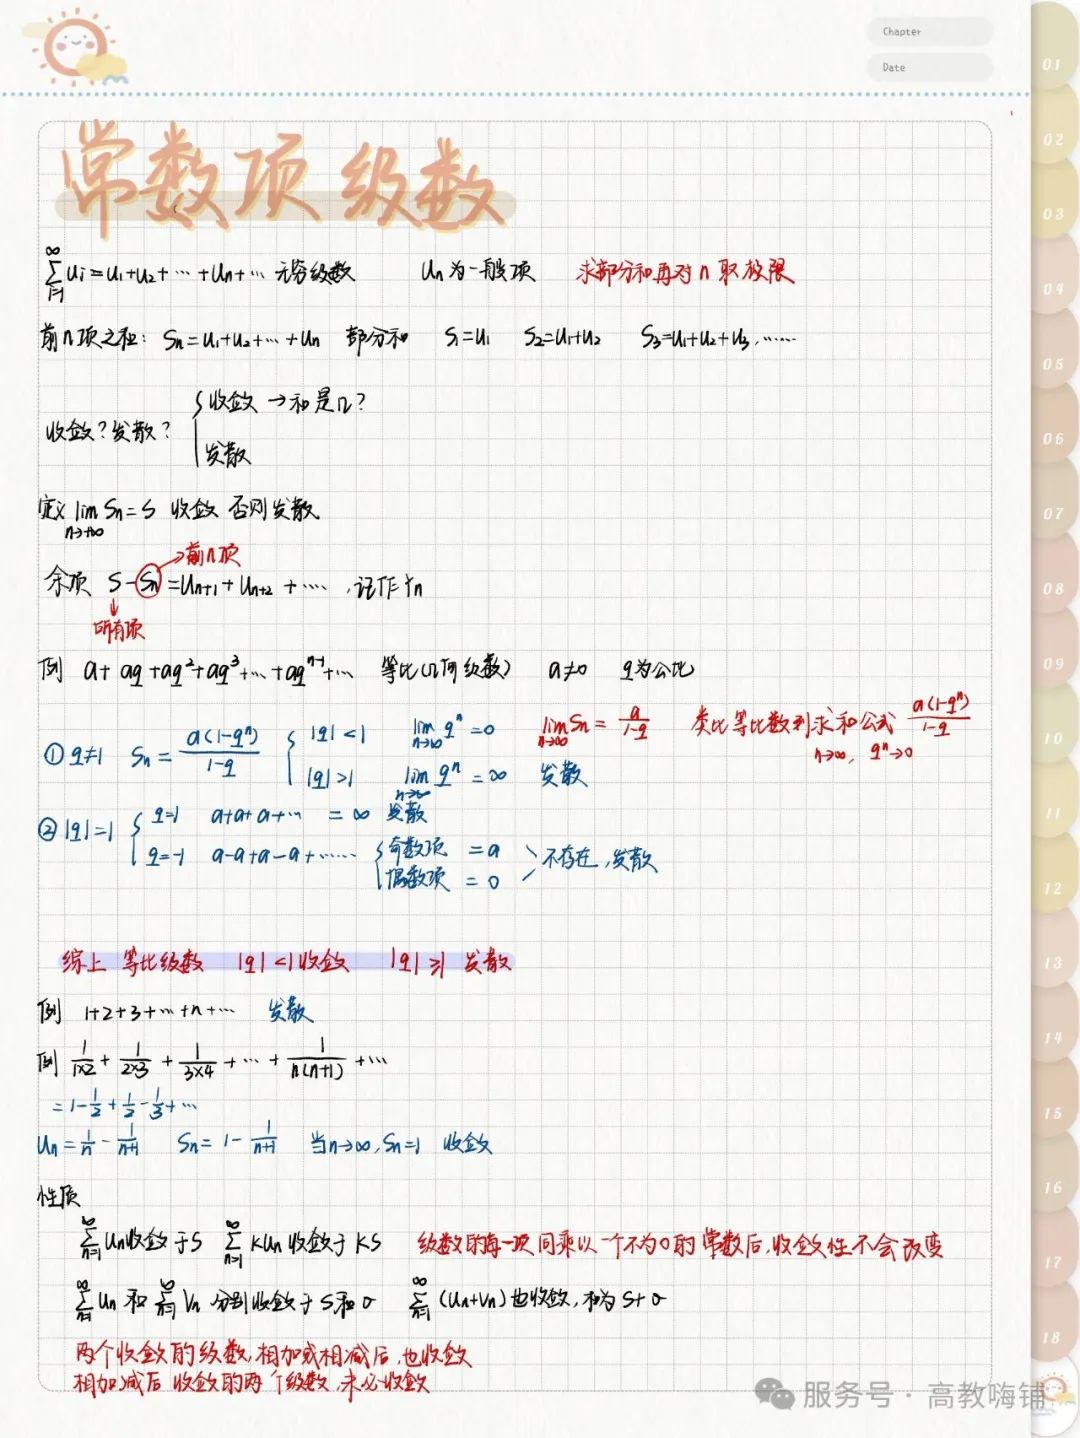 Chapter
Date
常数项级数
∞∑i=1 ui=u1+u2+…+un+… 无穷级数 un为一般项 求部分和再对n取极限
前n项之和: Sn=u1+u2+…+un 部分和 S1=u1 S2=u1+u2 S3=u1+u2+u3,……
收敛→和是几?
收敛?发散?
发散
定义 lim n→+∞ Sn=S 收敛 否则发散
前n项
余项 S-Sn=un+1+un+2+…. ,记作rn
所有项
例 a+aq+aq²+aq³+…+aqⁿ⁻¹+… 等比(几何级数) a≠0 q为公比
①q≠1 Sn=a(1-qⁿ)/1-q |q|<1 lim n→∞ qⁿ=0 lim n→∞ Sn=a/1-q 类比等比数列求和公式 a(1-qⁿ)/1-q
n→∞, qⁿ→0
|q|>1 lim n→∞ qⁿ=∞ 发散
②|q|=1 q=1 a+a+a+… =∞ 发散
q=-1 a-a+a-a+…… 奇数项 =a
偶数项 =0
不存在,发散
综上 等比级数 |q|<1收敛 |q|≥1 发散
例 1+2+3+…+n+… 发散
例 1/1×2+1/2×3+1/3×4+…+1/n(n+1)+…
=1-1/2+1/2-1/3+…
un=1/n-1/n+1 Sn=1-1/n+1 当n→∞,Sn=1 收敛
性质
∞∑n=1 un收敛于S ∞∑n=1 kun收敛于kS 级数的每一项同乘以一个不为0的常数后,收敛性不会改变
∞∑n=1 un和∞∑n=1 vn 分别收敛于S和σ ∞∑n=1 (un+vn)也收敛,和为S+σ
两个收敛的级数,相加或相减后,也收敛
相加减后收敛的两个级数,未必收敛
01
02
03
04
05
06
07
08
09
10
11
12
13
14
15
16
17
18
服务号·高教嗨铺